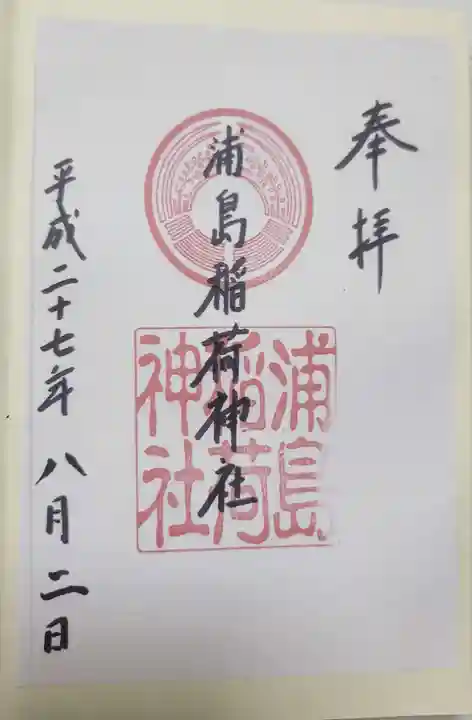 奉拝
浦島稲荷神社
浦島
稲荷
神社
平成二十七年八月二日